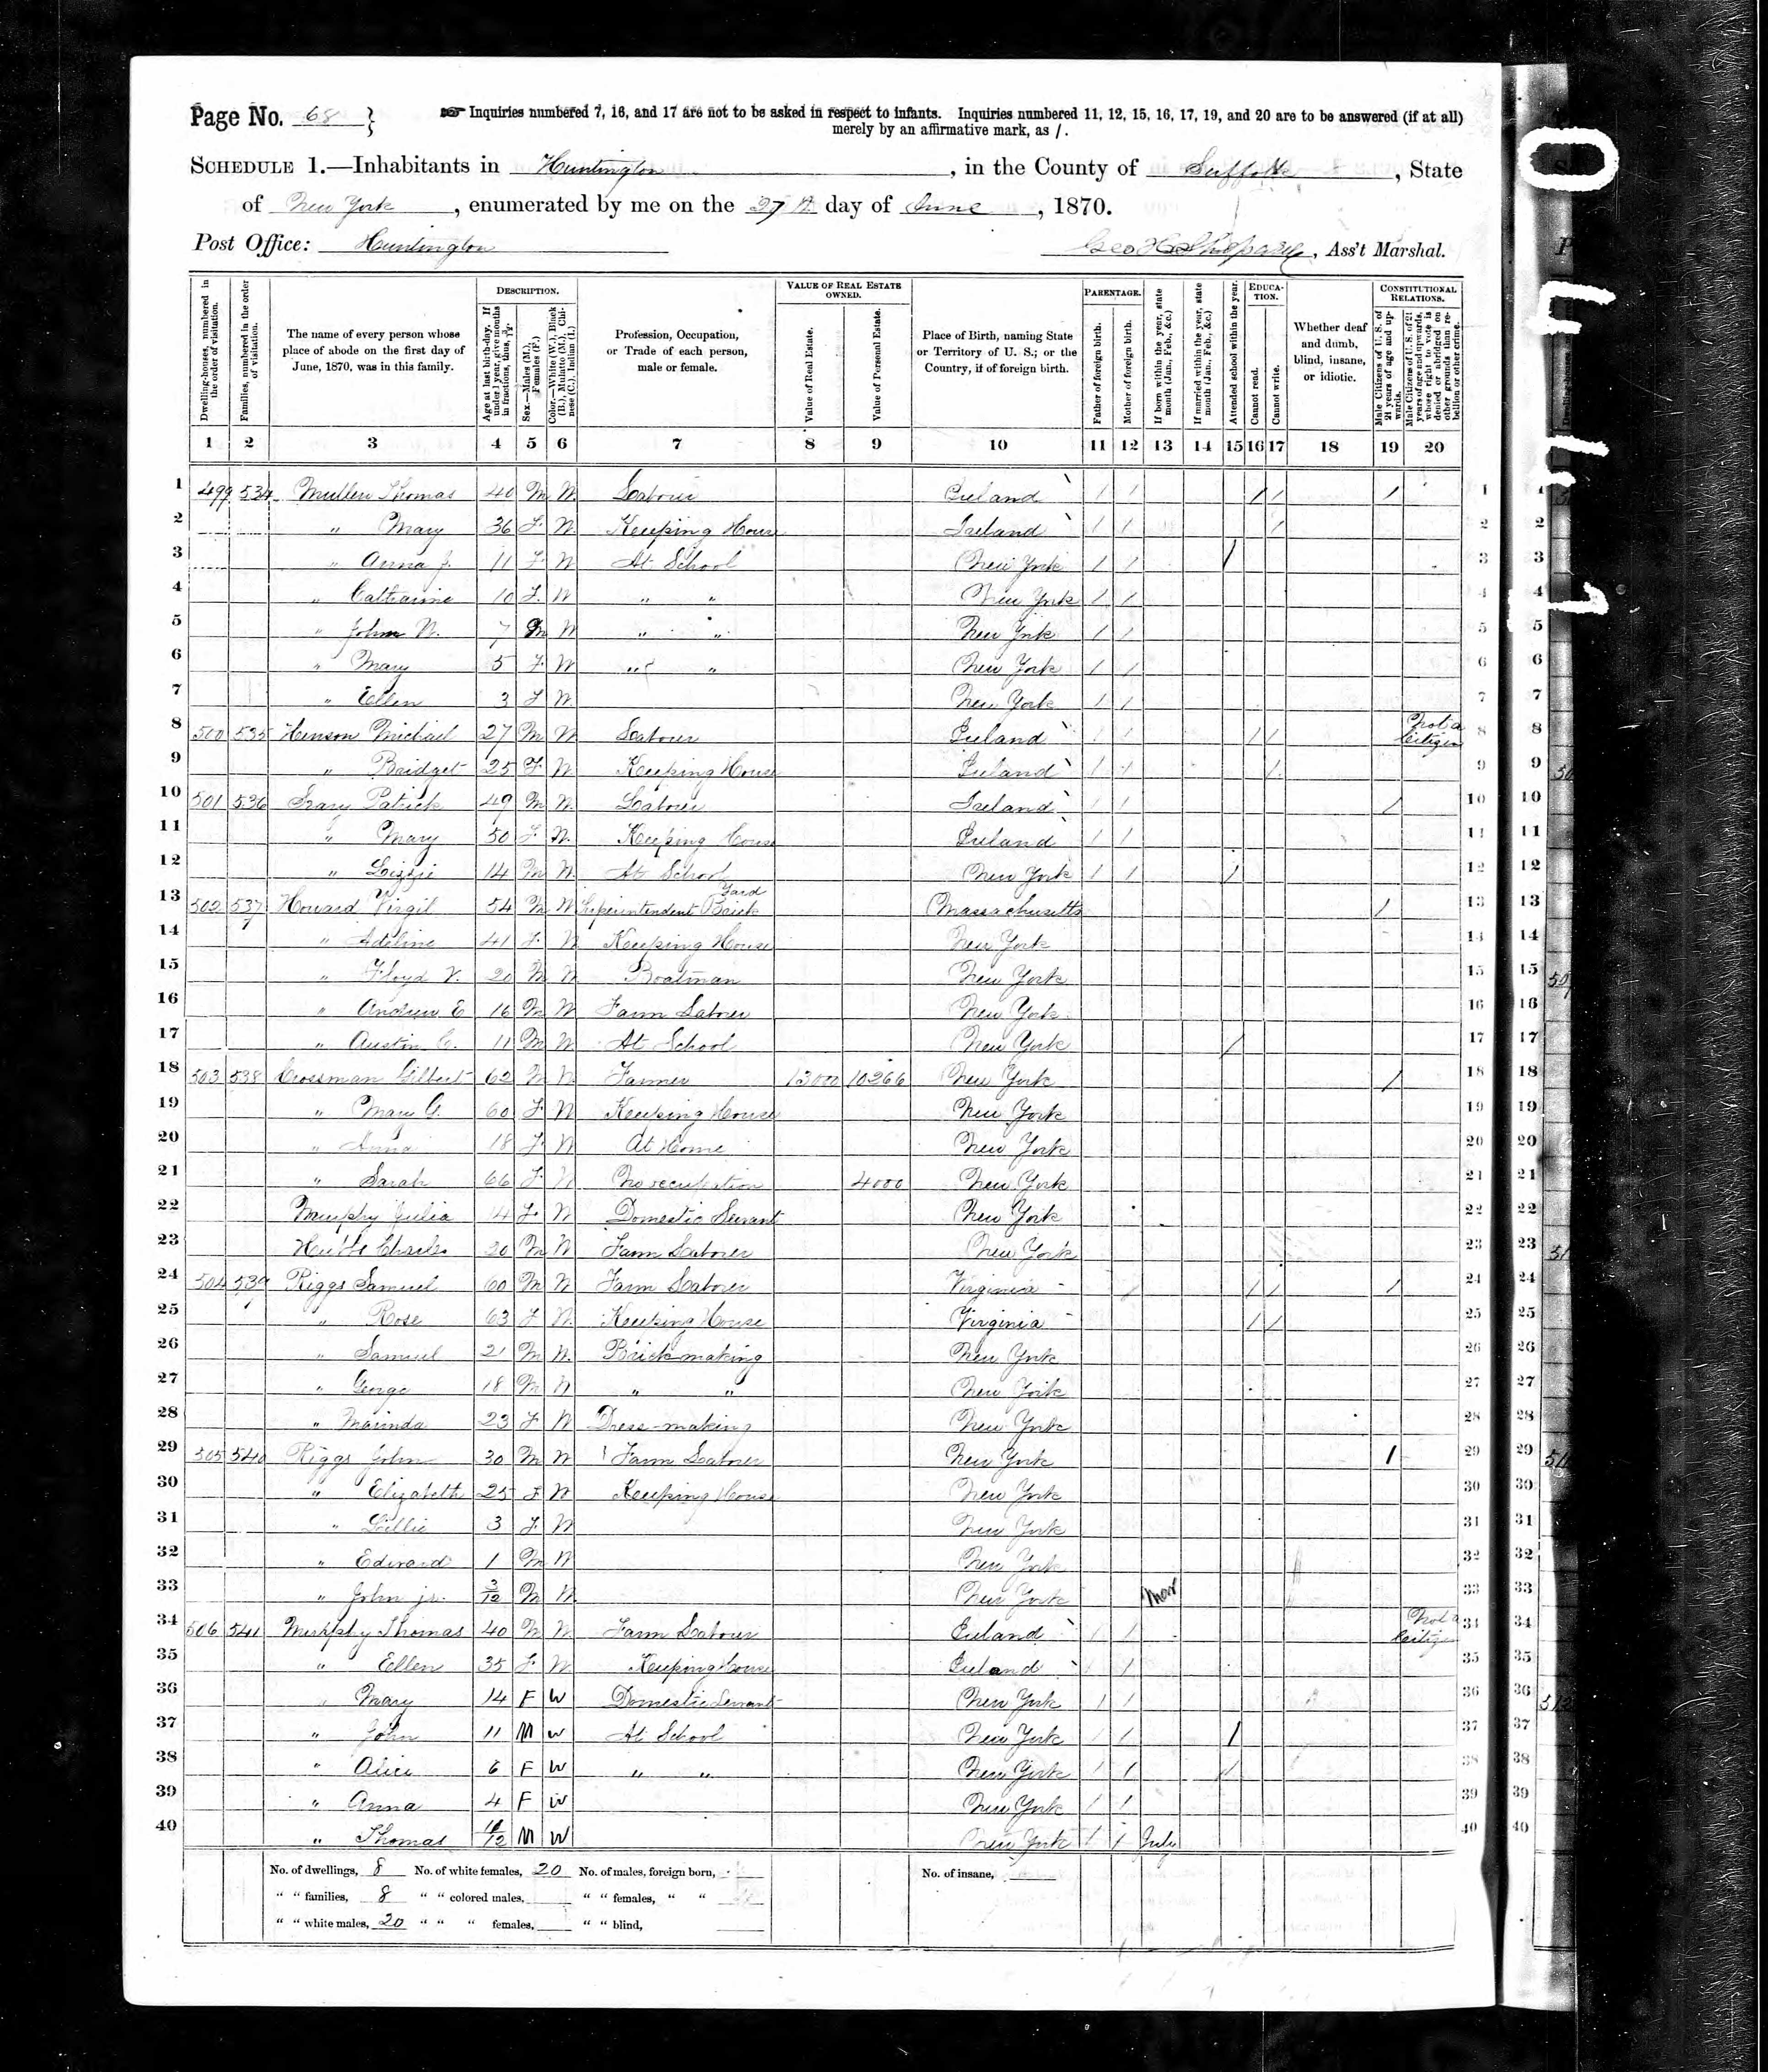 Page No. 68
Inquiries numbered 7, 16, and 17 are not to be asked in respect to infants. Inquiries numbered 11, 12, 15, 16, 17, 19, and 20 are to be answered (if at all)
merely by an affirmative mark, as /.
SCHEDULE 1.—Inhabitants in Huntington, in the County of Suffolk, State
of New York, enumerated by me on the 27th day of June, 1870.
Post Office: Huntington Geo H Shepard, Ass't Marshal.
Dwelling-houses, numbered in the order of visitation.
Families, numbered in the order of visitation.
The name of every person whose place of abode on the first day of June, 1870, was in this family.
DESCRIPTION.
Age at last birth-day. If under 1 year, give months in fractions, thus, 3/12.
Sex.—Males (M.), Females (F.)
Color.—White (W.), Black (B.), Mulatto (M.), Chinese (C.), Indian (I.)
Profession, Occupation, or Trade of each person, male or female.
VALUE OF REAL ESTATE OWNED.
Value of Real Estate.
Value of Personal Estate.
Place of Birth, naming State or Territory of U. S.; or the Country, if of foreign birth.
PARENTAGE.
Father of foreign birth.
Mother of foreign birth.
If born within the year, state month (Jan., Feb., &c.)
If married within the year, state month (Jan., Feb., &c.)
Attended school within the year.
EDUCATION.
Cannot read.
Cannot write.
Whether deaf and dumb, blind, insane, or idiotic.
CONSTITUTIONAL RELATIONS.
Male Citizens of U. S. of 21 years of age and upwards.
Male Citizens of U. S. of 21 years of age and upwards, whose right to vote is denied or abridged on other grounds than rebellion or other crime.
1 2 3 4 5 6 7 8 9 10 11 12 13 14 15 16 17 18 19 20
1 499 534 Mullen Thomas 40 M W Laborer Ireland / / / / / 1
2 " Mary 36 F W Keeping House Ireland / / / 2
3 " Anna J. 11 F W At School New York / / / 3
4 " Catharine 10 F W " " New York / / 4
5 " John W. 7 M W " " New York / / 5
6 " Mary 5 F W " " New York / / 6
7 " Ellen 3 F W New York / / 7
8 500 535 Henson Michael 27 M W Laborer Ireland / / / / Not a Citizen 8
9 " Bridget 25 F W Keeping House Ireland / / / 9
10 501 536 Patrick 49 M W Laborer Ireland / / / 10
11 " Mary 50 F W Keeping House Ireland / / 11
12 " Lizzie 14 M W At School New York / / / 12
13 502 537 Howard Virgil 54 M W Superintendent Brick Yard Massachusetts / 13
14 " Adeline 41 F W Keeping House New York 14
15 " Floyd V. 20 M W Boatman New York 15
16 " Andrew E 16 M W Farm Laborer New York 16
17 " Austin C. 11 M W At School New York / 17
18 503 538 Crossman Gilbert 62 M W Farmer 13000 10266 New York / 18
19 " Mary G. 60 F W Keeping House New York 19
20 " Anna 18 F W At Home New York 20
21 " Sarah 66 F W No occupation 4000 New York 21
22 Murphy Julia 14 F W Domestic Servant New York 22
23 Charles 20 M W Farm Laborer New York 23
24 504 539 Riggs Samuel 60 M W Farm Laborer Virginia / / / / 24
25 " Rose 63 F W Keeping House Virginia / / 25
26 " Samuel 21 M W Brick making New York 26
27 " George 18 M W " " New York 27
28 " Marinda 23 F W Dress-making New York 28
29 505 540 Riggs John 30 M W Farm Laborer New York / 29
30 " Elizabeth 25 F W Keeping House New York 30
31 " Lillie 3 F W New York 31
32 " Edward 1 M W New York 32
33 " John jr. 3/12 M W New York Mar 33
34 506 541 Murphy Thomas 40 M W Farm Laborer Ireland / / Not a Citizen 34
35 " Ellen 35 F W Keeping House Ireland / / 35
36 " Mary 14 F W Domestic Servant New York / / 36
37 " John 11 M W At School New York / / / 37
38 " Alice 6 F W " " New York / / / 38
39 " Anna 4 F W New York / / 39
40 " Thomas 11/12 M W New York / / July 40
No. of dwellings, 8 No. of white females, 20 No. of males, foreign born, No. of insane,
" " families, 8 " " colored males, " " females, " "
" " white males, 20 " " " females, " " blind,